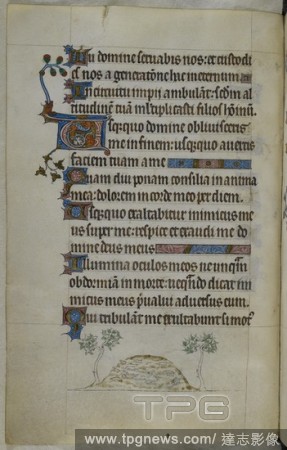 Tu domine servabis nos: et custodi
es nos a generatione hac in eternum
In circuitu impii ambulant: secundum al
titudinem tuam multiplicasti filios hominum.
Usquequo domine oblivisceris
me in finem: usquequo avertis
faciem tuam a me
Quam diu ponam consilia in anima
mea: dolorem in corde meo per diem.
Usquequo exaltabitur inimicus me
us super me: respice et exaudi me do
mine deus meus
Illumina oculos meos ne unquam
obdormiam in morte: nequando dicat ini
micus meus prevalui adversus eum.
Qui tribulant me exultabunt si mot
TPG
www.tpgnews.com / 達志影像